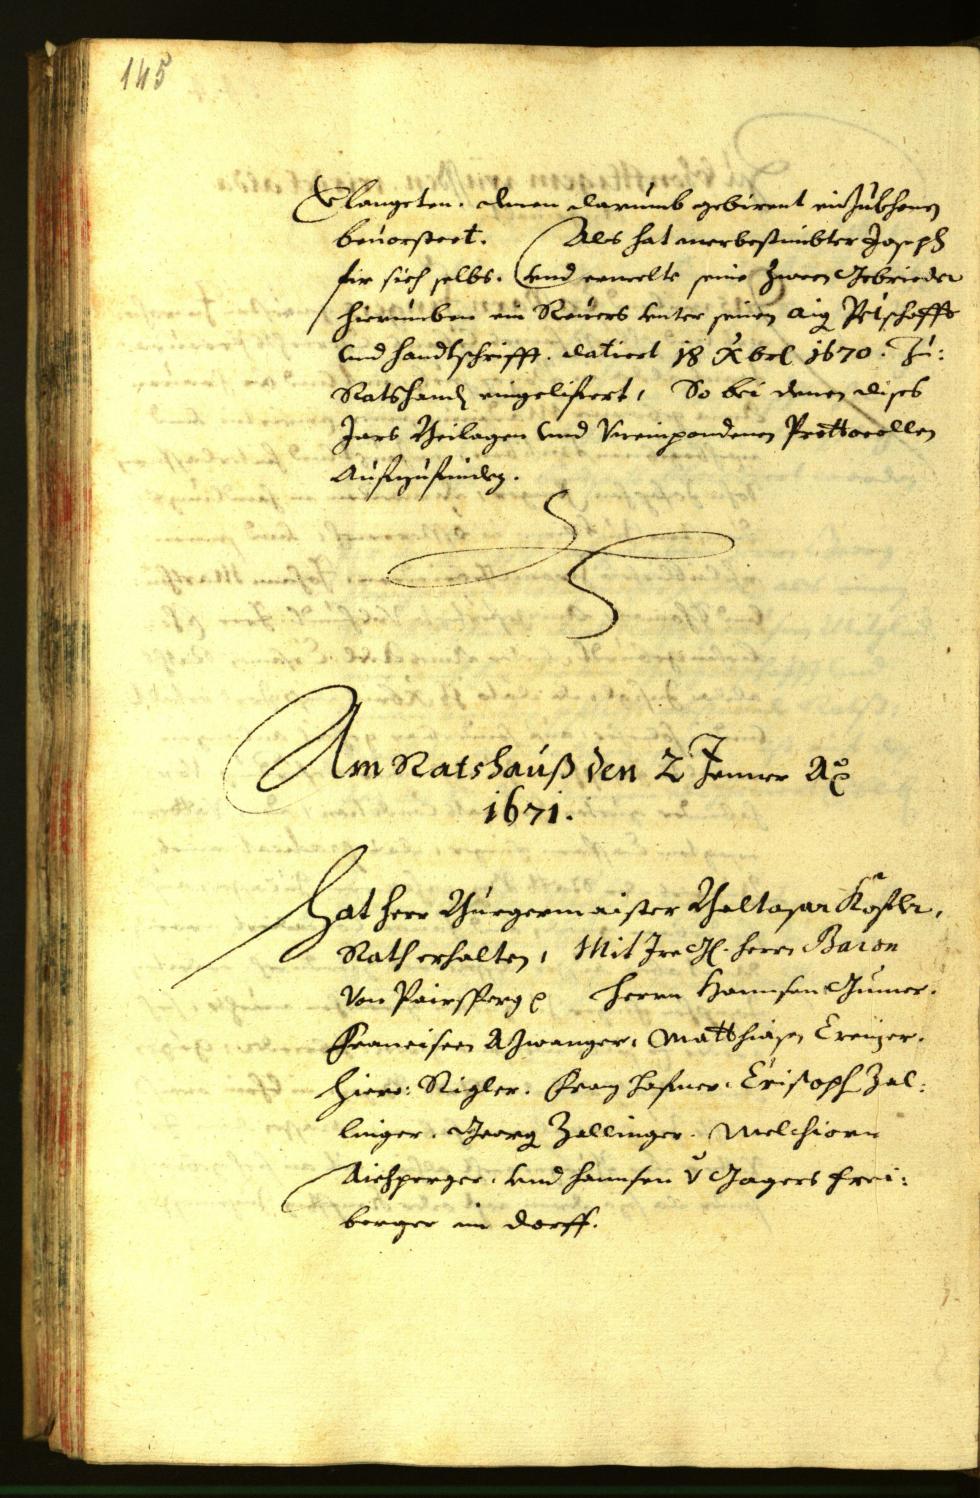 145
Clangeten. denen darumb gebirent einzukhomen
bevorsteet. Als hat merbestimbter Joseph
fir sich selbs. und ernente seine zween Gebrieder
hierumben ein Revers unter seinen aig Petschafft
und handtschrifft. datiert 18 Xbris 1670. Zu:
Ratshanden eingelifert, So bei denen dises
Jars Beilagen und Prottocollen
Aufzufinden.
Am Ratshauß den 2 Jenner Ao
1671.
Hat herr Burgermaister Balthasar Kofler,
Rath erhalten, Mit Ire Gl. herrn Baron
Von Pairsperg herrn Hannsen Gumer.
Francisen Azwanger, Matthiasen Creizer.
hiero: Rigler. Franz Hafner. Cristoph Zal:
linger. Georg Zallinger. Melchiorn
Aichperger. und hannsen v Jagers frei:
berger im dorff.